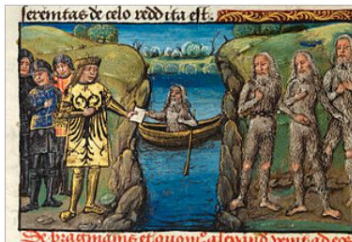 serenitas de celo reddita est.
De bragmanis et quomº